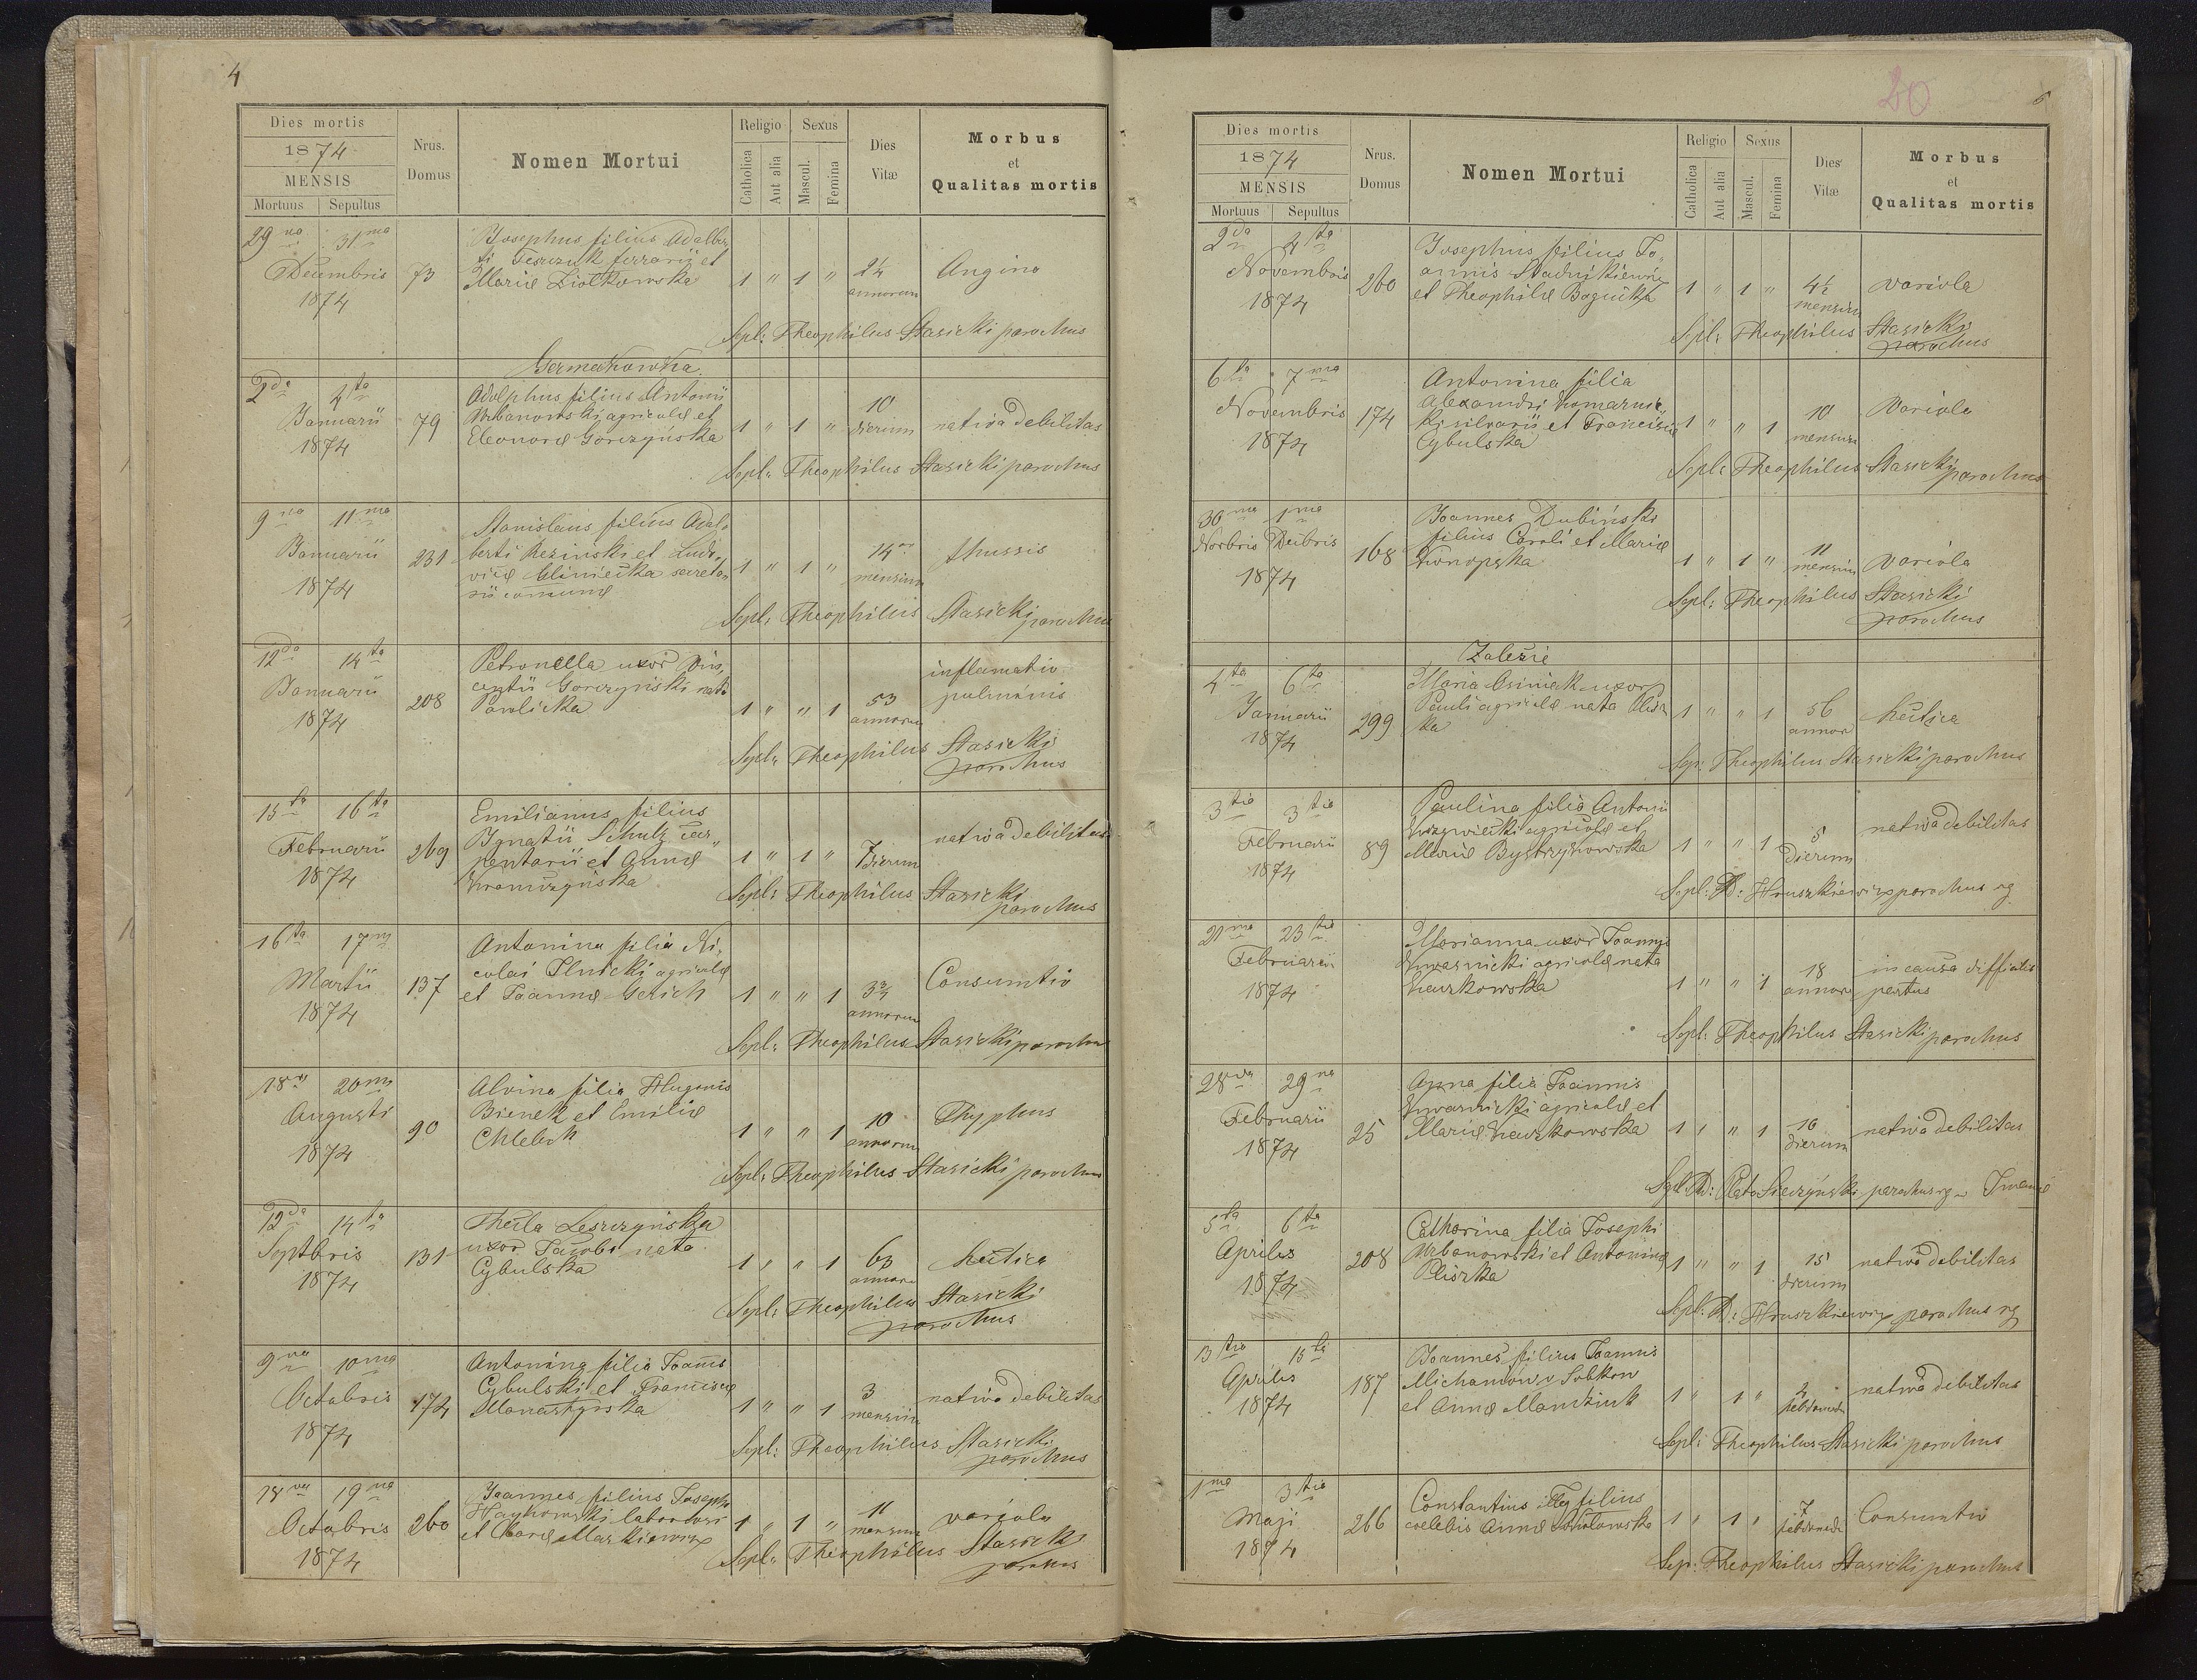 4
Dies mortis
1874
MENSIS
Mortuus Sepultus
Nrus. Domus
Nomen Mortui
Religio
Catholica Aut alia
Sexus
Mascul. Femina
Dies Vitæ
Morbus et Qualitas mortis
29 na 31 ma
Decembris
1874
73
Josephus filius Adalber
ti ferrarii et
Mariæ Ziołkowska
1 " 1 "
2½ annorum
Angina
Sepl: Theophilus Stasicki parochus
Germakowka
2 da 4 ta
Januarii
1874
79
Adolphus filius Antonii
Urbanowski agricolæ et
Eleonoræ Gorczyńska
1 " 1 "
10 dierum
nativa debilitas
Sepl: Theophilus Stasicki parochus
9 na 11 ma
Januarii
1874
231
Stanislaus filius Adal
berti et Ludo
vicæ secreta
rii comunæ
1 " 1 "
14 mensium
thussis
Sepl: Theophilus Stasicki parochus
12 da 14 ta
Januarii
1874
208
Petronella uxor Vin
centii Gorczyński nata
Pawlicka
1 " " 1
53 annorum
inflamatio
pulmonis
Sepl: Theophilus Stasicki
parochus
15 ta 16 ta
Februarii
1874
269
Emilianus filius
Ignatii Schulz car
pentarii et Annæ
1 " 1 "
7 dierum
nativa debilitas
Sepl: Theophilus Stasicki
parochus
16 ta 17 ma
Martii
1874
137
Antonina filia Ni
colai Ilnicki agricolæ
et Joannæ Gerich
1 " " 1
3¾ annorum
Consumtio
Sepl: Theophilus Stasicki parochus
18 20 ma
Augusti
1874
90
Alvina filia Hugonis
Bienek et Emiliæ
Chlebik
1 " " 1
10 annorum
Thyphus
Sepl: Theophilus Stasicki parochus
12 da 14 ta
Septbris
1874
131
Thecla Leszczyńska
uxor Jacobi nata
Cybulska
1 " " 1
63 annorum
hectica
Sepl: Theophilus Stasicki
parochus
9 na 10 ma
Octobris
1874
174
Antonina filia Joannis
Cybulski et Franciscæ
1 " " 1
3 mensium
nativa debilitas
Sepl: Theophilus Stasicki
parochus
18 va 19 na
Octobris
1874
260
Joannes filius Josephi
laboriosi
et Claræ Maskiewicz
1 " 1 "
11 mensium
variola
Sepl: Theophilus Stasicki
parochus
20
Dies mortis
1874
MENSIS
Mortuus Sepultus
Nrus. Domus
Nomen Mortui
Religio
Catholica Aut alia
Sexus
Mascul. Femina
Dies Vitæ
Morbus et Qualitas mortis
2 da 4 ta
Novembris
1874
260
Josephus filius Jo
annis
et Theophilæ
1 " 1 "
4½ mensium
variola
Sepl: Theophilus Stasicki
parochus
6 ta 7 ma
Novembris
1874
174
Antonina filia
Alexandri Komarnic
ki silvarii et Franciscæ
Cybulska
1 " " 1
10 mensium
Variola
Sepl: Theophilus Stasicki parochus
30 ma 1 ma
Novbris Decbris
1874
168
Joannes Dubiński
filius Caroli et Mariæ
Konopska
1 " 1 "
11 mensium
Variola
Sepl: Theophilus Stasicki
parochus
Zalesie
4 ta 6 ta
Januarii
1874
299
Maria uxor
Pauli agricolæ nata Plisz
ka
1 " " 1
56 annor
hectica
Sep: Theophilus Stasicki parochus
3 tia 3 tia
Februarii
1874
89
Paulina filia Antonii
agricolæ et
Mariæ Bystrzykowska
1 " " 1
5 dierum
nativa debilitas
Sepl: A: Hruszkiewicz parochus rg
21 ma 23 tia
Februarii
1874
Marianna uxor Joannis
Kwasnicki agricolæ nata
1 " " 1
18 annor
in causa difficilis
partus
Sepl: Theophilus Stasicki parochus
28 va 29 na
Februarii
1874
25
Anna filia Joannis
Kwasnicki agricolæ et
Mariæ
1 " " 1
10 dierum
nativa debilitas
Sepl: parochus
5 ta 6 ta
Aprilis
1874
208
Catharina filia Josephi
Urbanowski et Antoninæ
Pliszka
1 " " 1
15 dierum
nativa debilitas
Sepl: A: Hruszkiewicz parochus rg
13 tia 15 ta
Aprilis
1874
187
Joannes filius Joannis
Michaniów v Sobkow
et Annæ
1 " 1 "
2 hebdomada
nativa debilitas
Sepl: Theophilus Stasicki parochus
1 ma 3 tia
Maji
1874
266
Constantinus illeg filius
coelebis Annæ Sokolowska
1 " 1 "
7 hebdomada
Consumtio
Sep: Theophilus Stasicki parochus